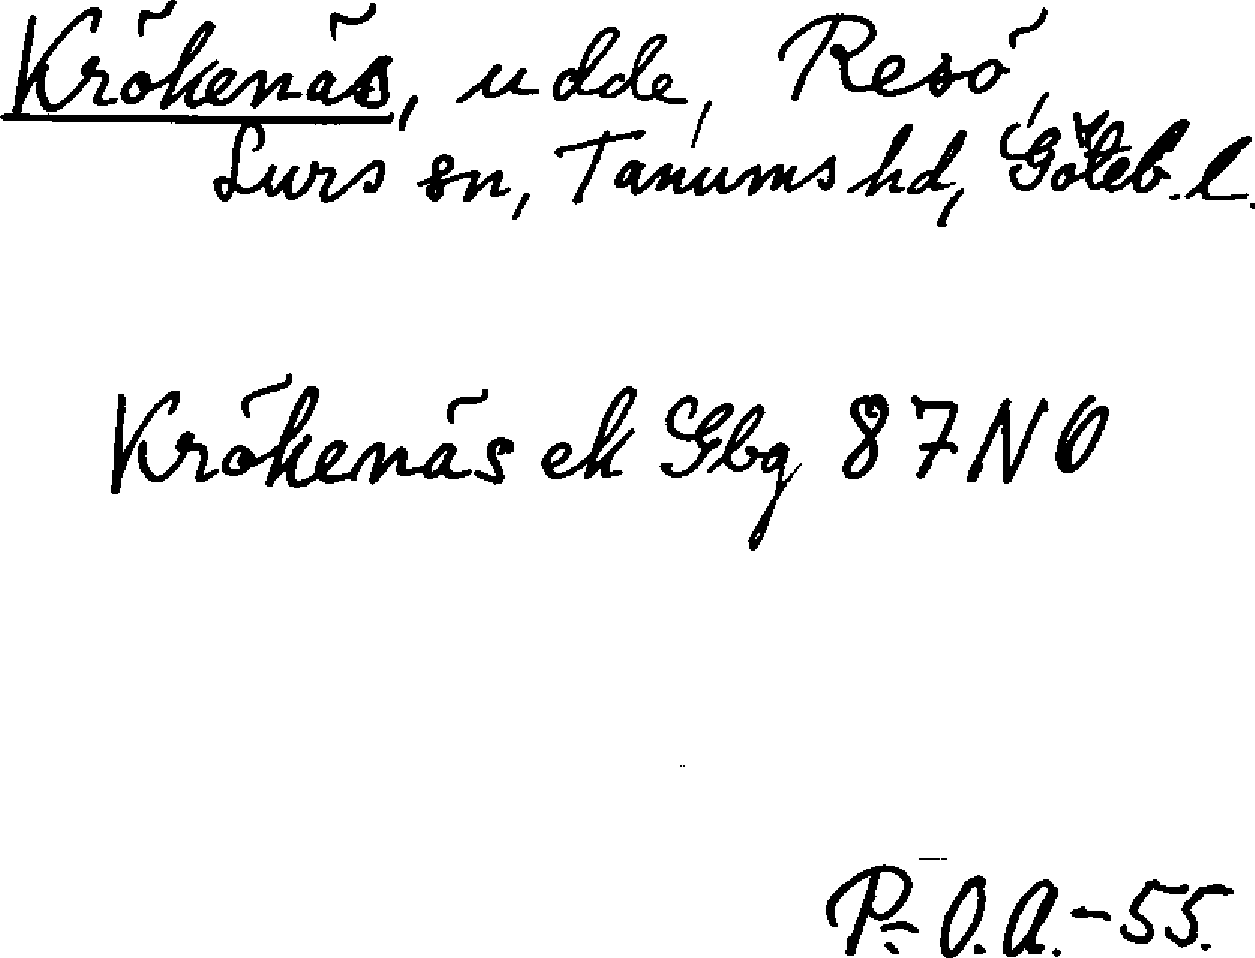 Krökenäs, udde, Resö,
Lurs sn, Tanums hd, Göteb. l.
Krökenäs ek Gbg 87 NO
P-O.A.-55.